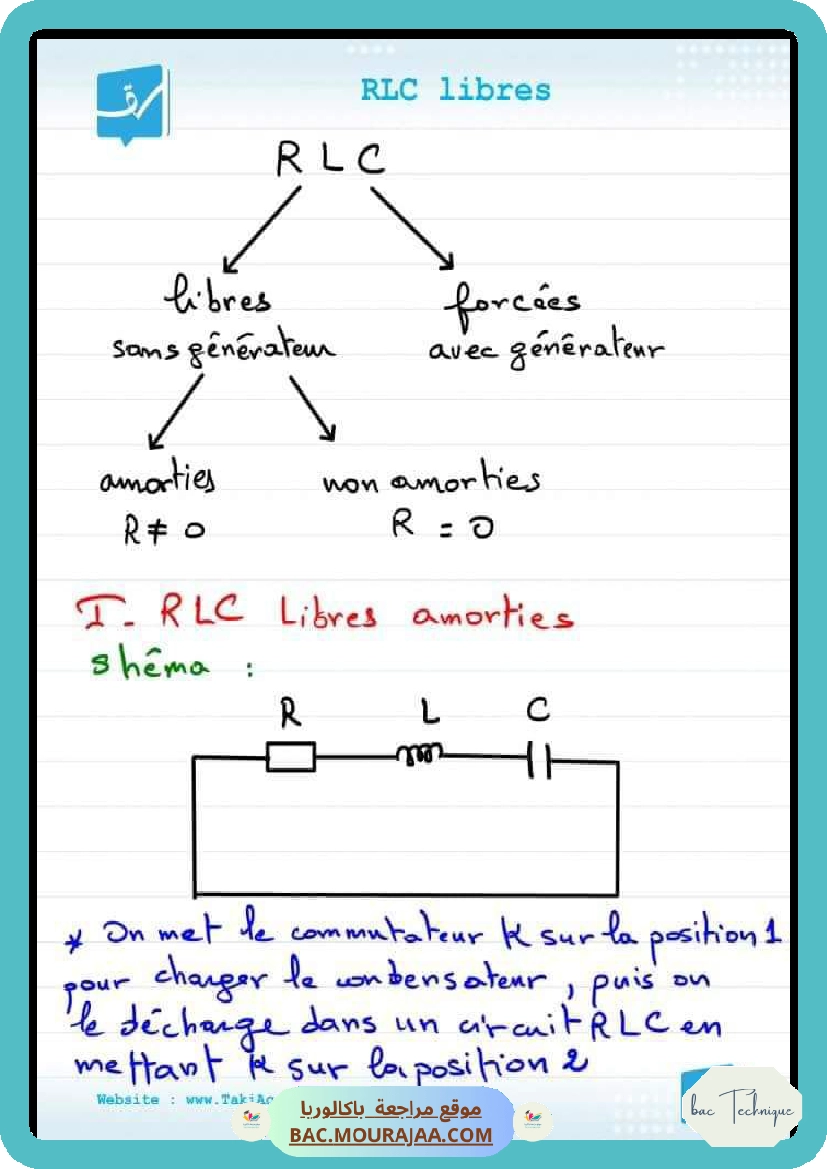 RLC libres
سرقد
R L C
libres
forcées
sans générateur
avec générateur
amorties
non amorties
R ≠ 0
R = 0
I. RLC Libres amorties
shéma :
R L C
* On met le commutateur K sur la position 1
pour charger le condensateur, puis on
le décharge dans un circuit RLC en
mettant K sur la position 2
Website : www.TakiAc
موقع مراجعة باكالوريا
BAC.MOURAJAA.COM
bac Technique